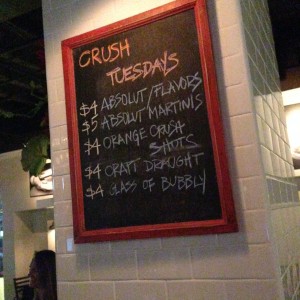 CRUSH
TUESDAYS
$4 ABSOLUT/FLAVORS
$5 ABSOLUT MARTINIS
$4 ORANGE CRUSH
SHOTS
$4 CRAFT DRAUGHT
$4 GLASS OF BUBBLY